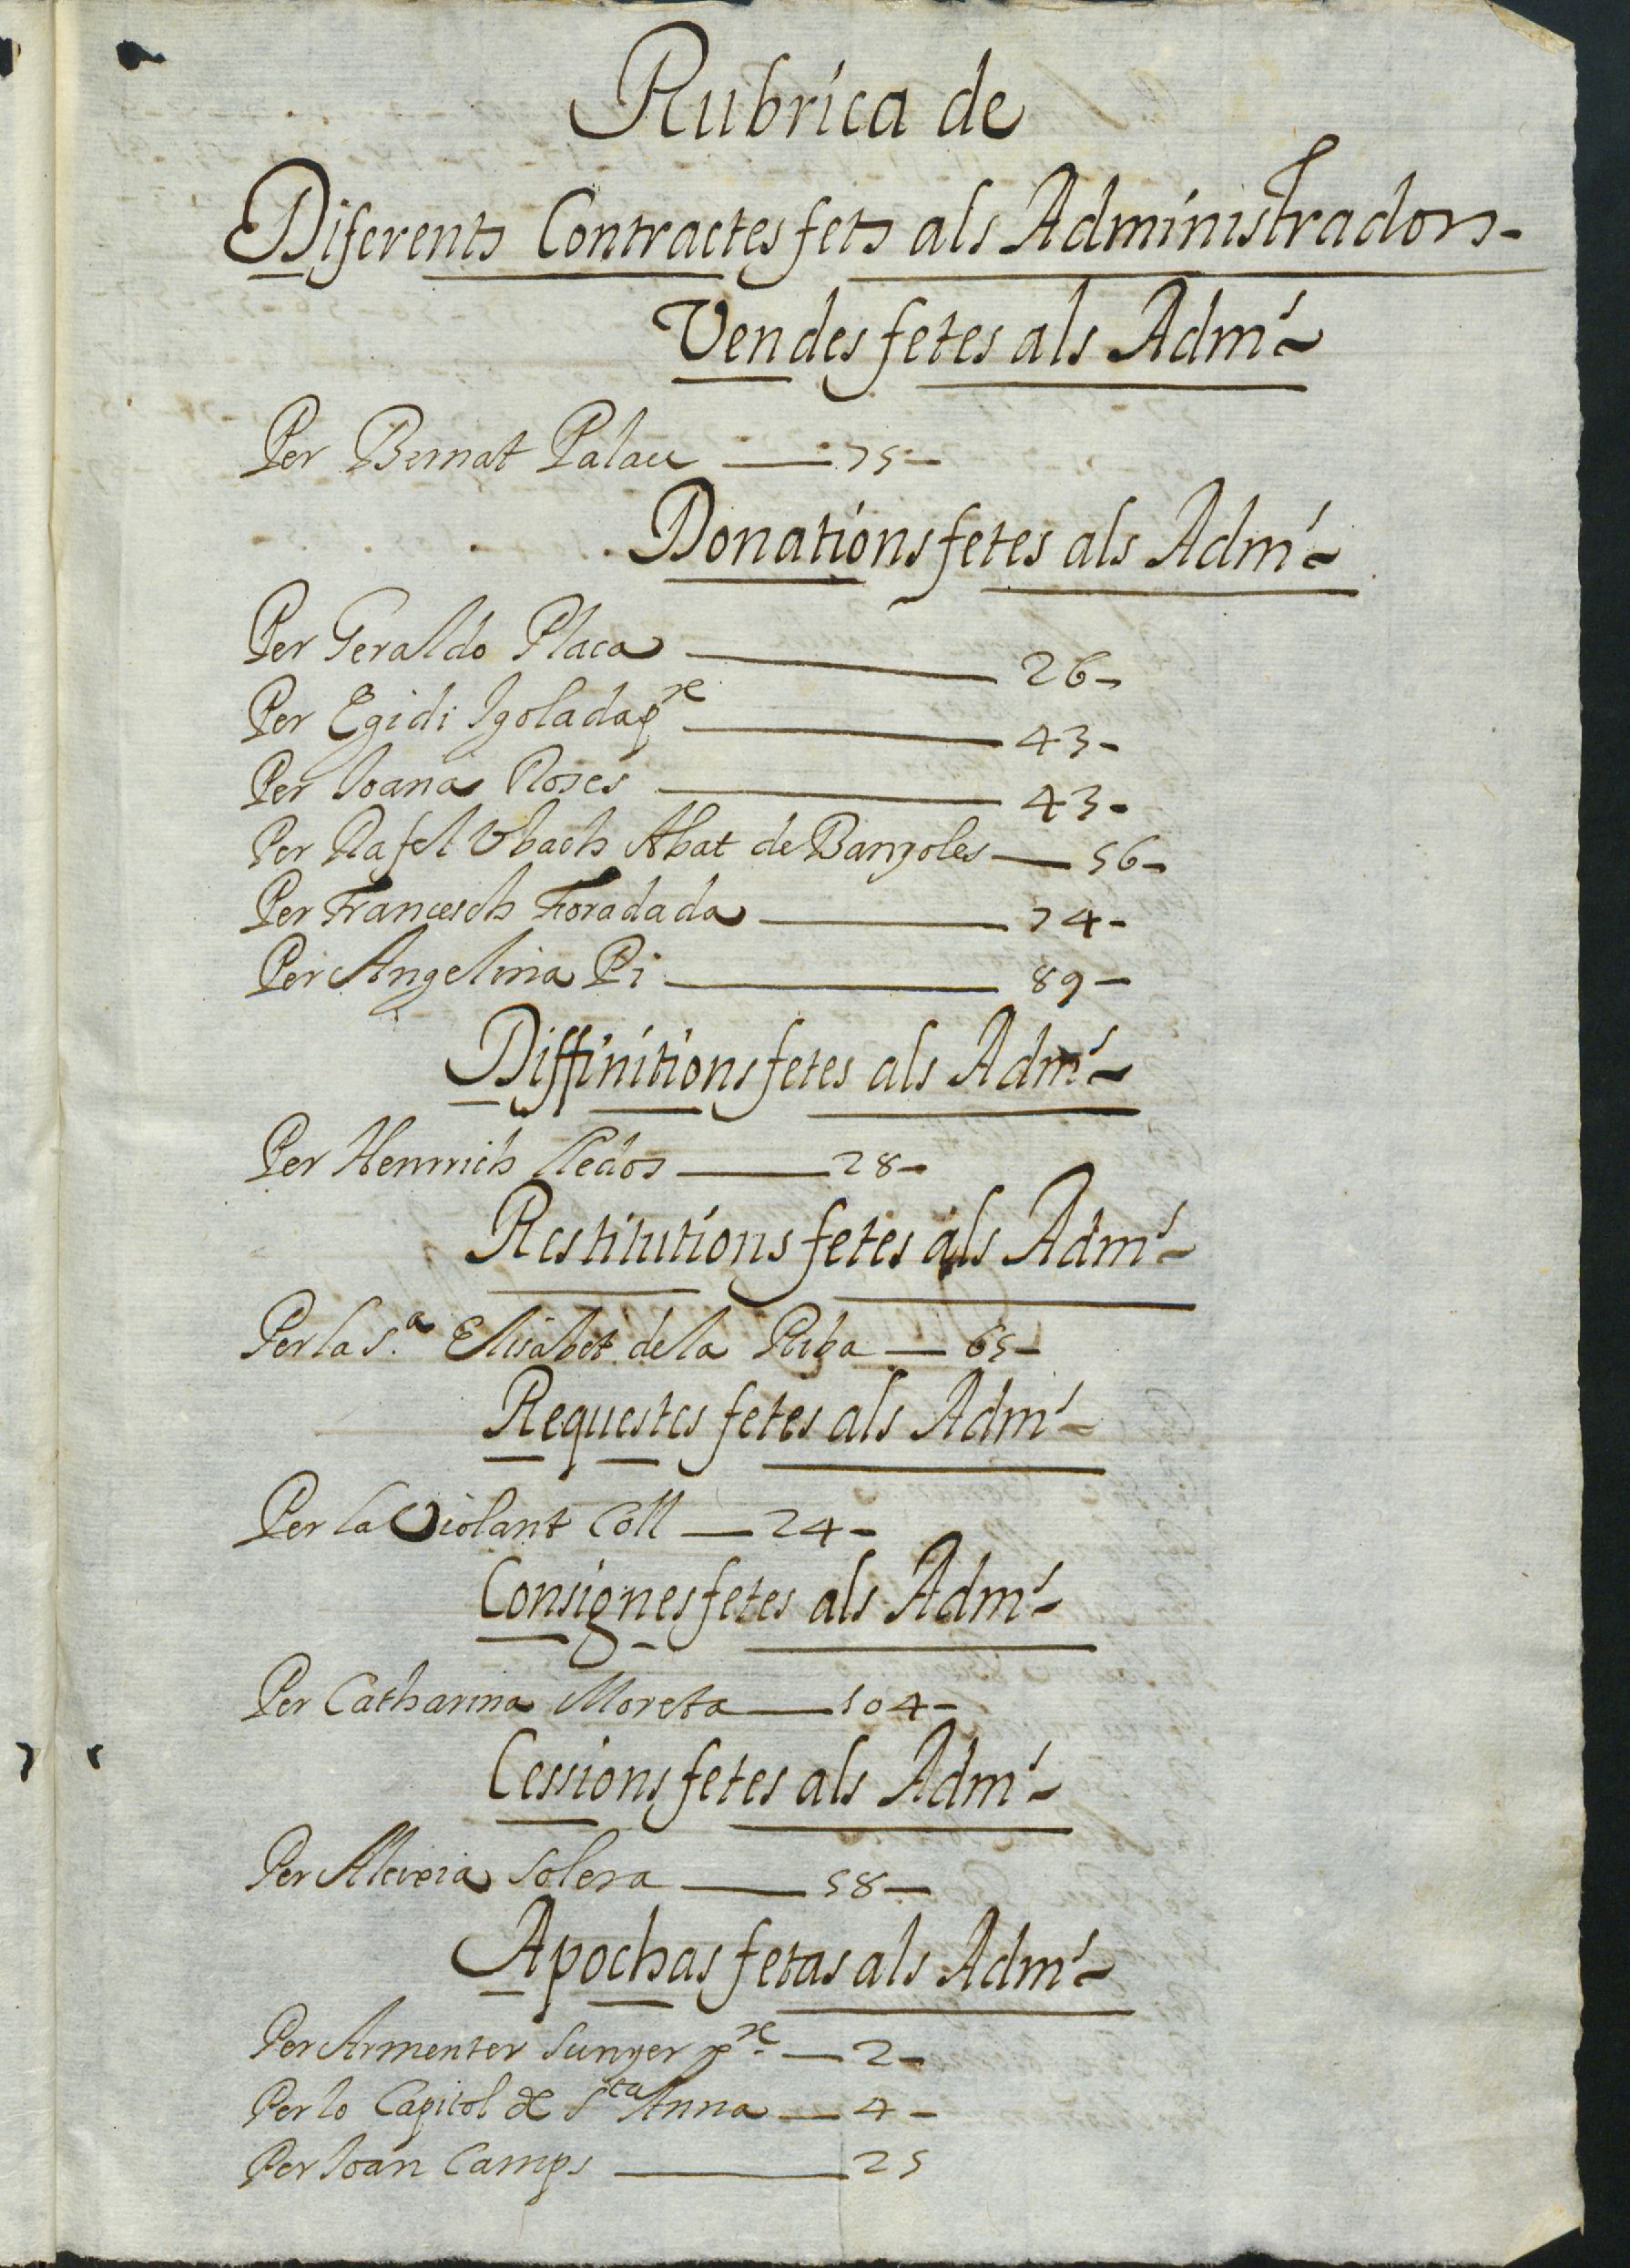 Rubrica de
Diferents Contractes fets als Administradors-
Vendes fetes als Adm.~
Per Bernat Palau — 75-
Donations fetes als Adm.~
Per Geraldo Placa — 26-
Per Egidi Igolada pre — 43-
Per Joana Roses — 43-
Per Rafel Ubach Abat de Banyoles — 56-
Per Francesch Foradada — 74-
Per Angelina Pi — 89-
Diffinitions fetes als Adm.~
Per Henrrich Lledos — 28-
Restitutions fetes als Adm.~
Per la S.a Elisabet de la Riba — 65-
Requestes fetes als Adm.~
Per la Violant Coll — 24-
Consignes fetes als Adm.~
Per Catharina Moreta — 104-
Cessions fetes als Adm.~
Per Aleixia Solera — 58-
Apochas fetas als Adm.~
Per Armenter Sunyer pre. — 2-
Per lo Capitol de Sta Anna — 4-
Per Joan Camps — 25